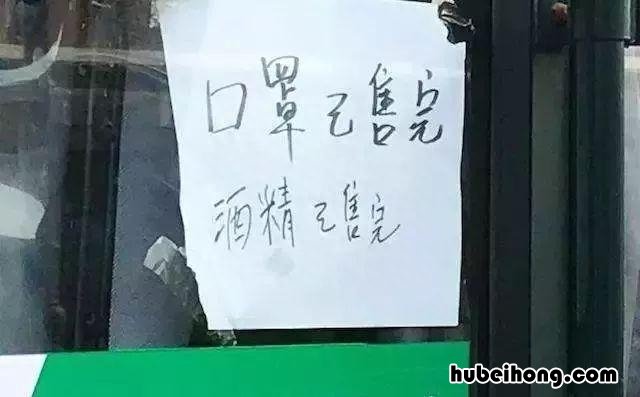 口罩已售完
酒精已售完
hubeihong.com